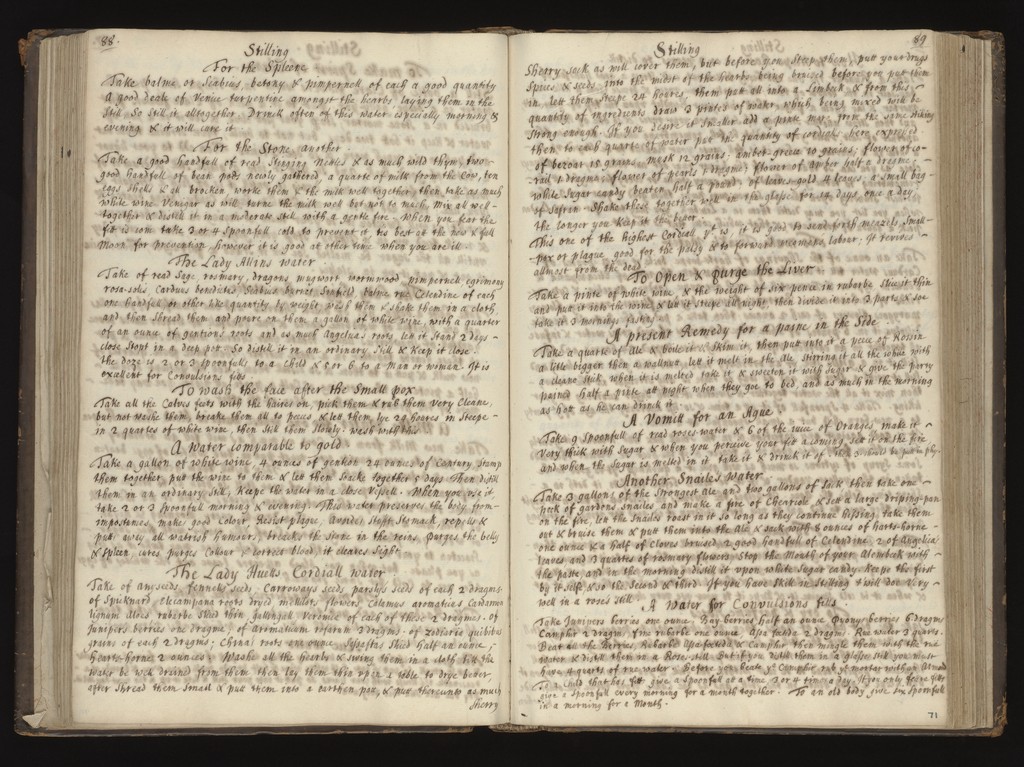 88.
Stilling
For the Spleene
Take balme or Scabius, betony & pimpernell of each a good quantity
a good deale of Venice turpentine amongst the hearbs laying them in the
Still. So still it alltogether. Drinck often of this water especially morning &
evening & it will cure it
For the Stone another
Take a good handfull of read Stinging Nettles & as much wild thym, two
good handfull of bean pods newly gathered, a quarte of milk from the Cow, ten
eggs shells & all brocken, worke them & the milk well together, then take as much
white wine Venegar as will turne the milk well but not to much, Mix all well
together & distill it in a moderate still with a gentle fire. When you fear the
fit is com take 3 or 4 spoonfull cold to prevent it, tis best at the new & full
Moon for prevention, however it is good at other time when you are ill.
The Lady Allins water
Take of read Sage, rosmary, dragons, mugwort wormwood pimpernell, egrimony
rosa-solis, Carduus benedictus Scabius burnet balme rue Celendine of each
one handfull or other like quantity, by weight, wash them & shake them in a cloth
and then Shread them and poure on them a gallon of white wine, with a quarter
of an ounce of gentions roots and as much Angelica roots, lett it Stand 2 days
close Stopt in a deep pot. So distill it in an ordinary Still & Keep it close.
the doze is 2 or 3 spoonfulls to a Child & 5 or 6 to a Man or woman. It is
excellent for Convulsions fits
To wash the face after the Small pox
Take all the Calves feet with the haires on, pick them & rub them Very Cleane,
but not washe them, breake them all to peeces & lett them lye 24 houres in steepe
in 2 quartes of white wine, then Still them Slowly. wash with this
A water comparable to gold
Take a gallon of white wine, 4 ounces of gention 24 ounces of Century Stamp
them together, put the wine to them & lett them Soake together 5 days Then distill
them in an ordinary Still, Keepe the water in a close Vessell. When you use it,
take 2 or 3 spoonfull morning & evening. This water preserves the body from
impostumes, make good Colour, Resist plague, avoides Stuft Stomack, repells &
putt away all watrish humours, breakes the Stone in the reins, purges the belly
& spleen, cures, purges Collour & correct blood, it cleares Sight
The Lady Huetts Cordiall water
Take of aneseeds, fennells seeds, Carroways seeds parslys seeds of each 2 dragms
of Spicknard, elicampana roots dryed melilots flowers, Calamus aromaticus Cardamon
Lignum Aloes rubarbe Sliced thin, gallingall of each of these 2 dragms. of
Junipers berries one dragme, of Aromaticum rosarum 3 dragms.
grains of each 2 dragms; China roots one ounce, Sliced Half an ounce;
Hearts-horne 2 ounces. Washe all the hearbs & swing them in a cloth till the
water be well drained from them, then lay them thin upon a table to drye better,
after Shread them Small & putt them into a earthen pott, & putt thereunto as much
Sherry
89
Stilling
Sherry sack as will cover them, but before you Steep them, putt your drugs
Spices & seeds into the midst of the hearbs, being bruised before you put them
in, lett them steepe 24 houres, then putt all into a Limbeck & from this
quantity of ingredients draw 3 pintes of water, which being mixed will be
Strong enough. If you desire it smaller add a pinte more from the same Stilling
then to each quarte of water put the quantity of cordialls here expressed
of bezoar 15 grains, mask 12 grains, amber-greece 10 grains; flower of co-
-rall 1 dragme; flower of pearls 1 dragme; flower of amber half a dragme;
white Sugar candy beaten, half a pound, of leaves gold 4 leaves; a small bag
of Safran. Shake these together well in the glasse for 14 days, once a day,
the longer you Keep it the beter
This one of the highest Cordiall yt is, it is good to send forth measels, small-
-pox or plague, good for the palsy & to forward womans labour; It revives
allmost from the dead
To Open & Purge the Liver
Take a pinte of white wine, & the weight of six pence in rubarbe Slice it thin
and putt it into the wine, & lett it steepe all night, then divide it into 3 parts, & soe
take it 3 mornings fasting
A present Remedy for a paine in the Side
Take a quart of Ale & boile it & skim it, then putt into it a peece of Rosin
a little bigger then a wallnutt, lett it melt in the Ale Stirring it all the while with
a cleane Stick, when it is melted take it & sweeten it with sugar & give the party
pained half a pinte at night when they goe to bed, and as much in the morning
as hott as he can drinck it
A Vomett for an Ague
Take 9 spoonfull of read roses water & 6 of the juice of Oranges make it
Very thick with Sugar & when you perceive your fit a coming, sett it on the fire,
and when the Sugar is melted in it take it & drinck it of.
Another Snailes Water
Take 3 gallons of the strongest Ale and two gallons of Sack then take one
peck of gardens snailes and make a fire of Charcole & sett a large driping-pan
on the fire, lett the Snailes roast in it so long as they continue hissing, take them
out & bruise them & putt them into the Ale & sack with 8 ounces of harts-horne
one ounce & a half of Cloves bruised 2 good handfull of Celendine 2 of Angelica
leaves and 3 quartes of rosmary flowers, Stop the Mouth of your Alembeck with
the paste, and in the morning distill it upon white Sugar candy. Keepe the first
by it self, & so the second & third. If you have skill in Stilling it will doe Very
well in a roses Still
A Water for Convulsions fitts
Take Junipers berries one ounce, Bay berries half an ounce, Pyony berries 6 dragms
Camphir 2 dragm, fine rubarbe one ounce. Assa fœtida 2 dragms. Rue water 3 quarts.
Beat all the Berries, Rubarbe Assafœtida & Camphir then mingle them with the rue
water & distill them in a Rose-Still. But if you distill them in a glasse Still you must
have 4 quarts of rue water. Before you beate yt Camphir, rub yt mortar with an Almond
To a Child that has fitt give a spoonfull at a time 3 or 4 time a day. If you only feare fitts
give a spoonfull every morning for a month together. To an old body give six spoonfull
in a morning for a Month.
71